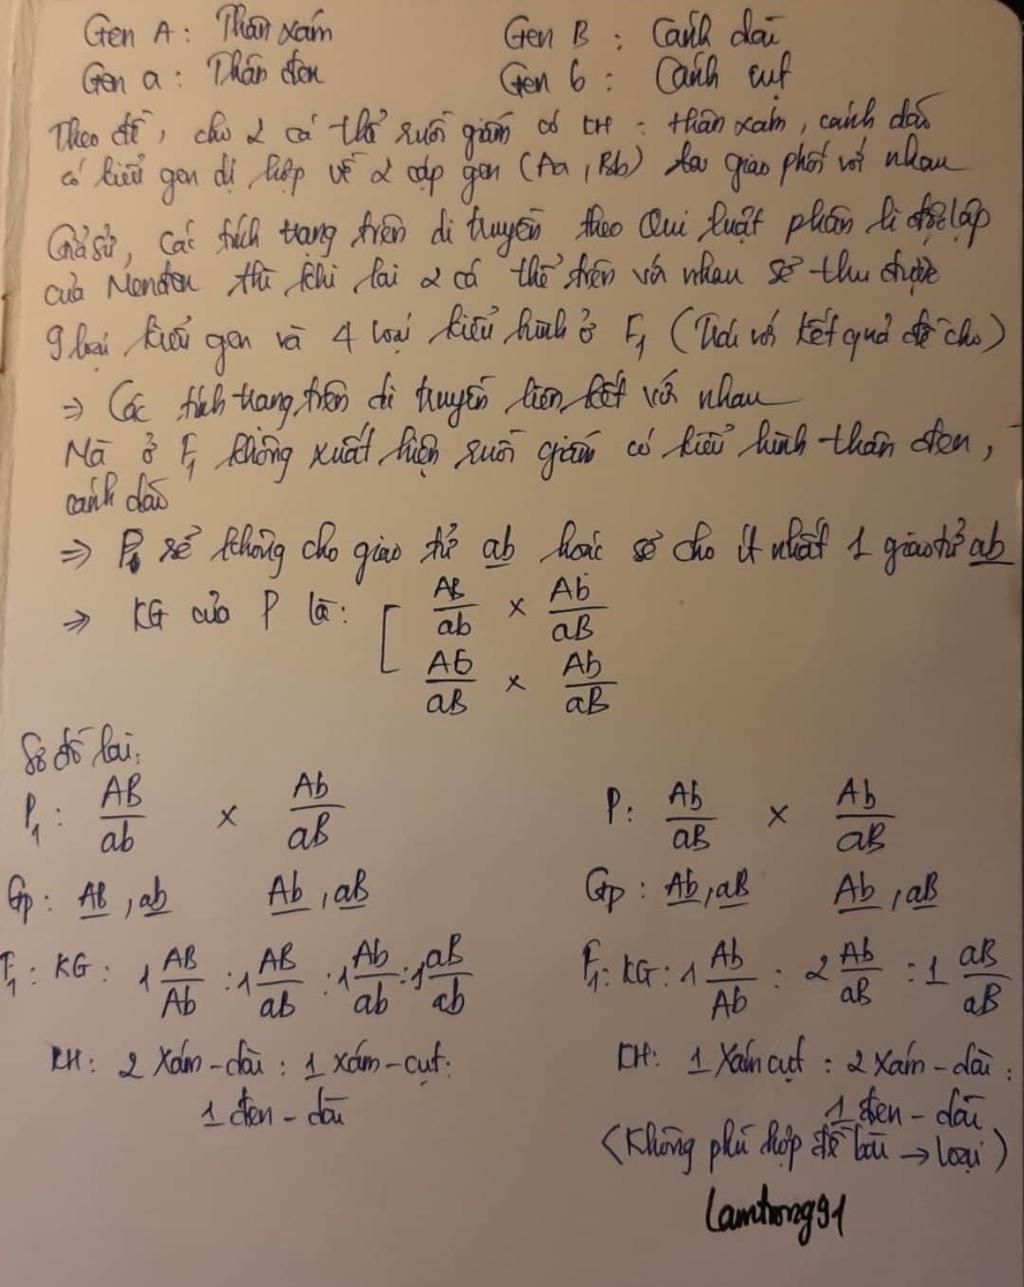 Gen A : Thân xám Gen B : Cánh dài
Gen a : Thân đen Gen b : Cánh cụt
Theo đề, cho 2 cá thể ruồi giấm có KH : thân xám, cánh dài
có kiểu gen dị hợp về 2 cặp gen (Aa, Bb) giao phối với nhau
Giả sử, các tính trạng trên di truyền theo Qui luật phân li độc lập
của Menđen thì khi lai 2 cá thể trên với nhau sẽ thu được
9 loại kiểu gen và 4 loại kiểu hình ở F1 (Trái với kết quả đề cho)
=> Các tính trạng trên di truyền liên kết với nhau
Mà ở F1 không xuất hiện ruồi giấm có kiểu hình thân đen,
cánh dài
=> P sẽ không cho giao tử ab hoặc sẽ cho ít nhất 1 giao tử ab
=> KG của P là: [ AB/ab × Ab/aB
Ab/aB × Ab/aB
Sơ đồ lai:
P1 : AB/ab × Ab/aB P : Ab/aB × Ab/aB
Gp : AB, ab Ab, aB Gp : Ab, aB Ab, aB
F1 : KG : 1 AB/Ab : 1 AB/aB : 1 Ab/ab : 1 aB/ab F1 : KG : 1 Ab/Ab : 2 Ab/aB : 1 aB/aB
KH : 2 xám - dài : 1 xám - cụt : KH : 1 Xám cụt : 2 xám - dài :
1 đen - dài 1 đen - dài
(Không phù hợp đề bài → loại)
lamtrong91